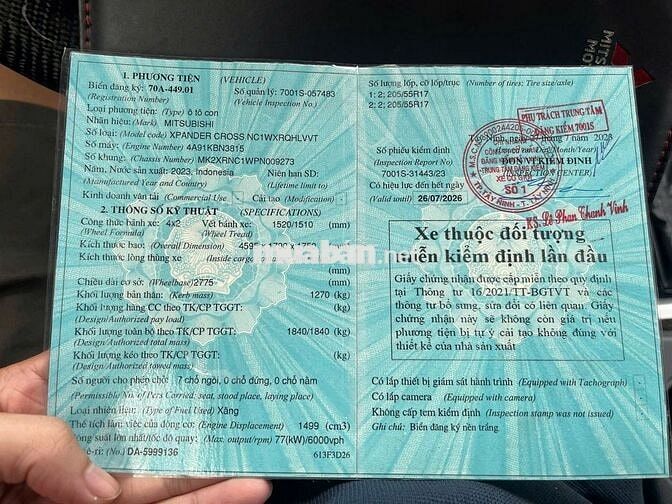 1. PHƯƠNG TIỆN (VEHICLE)
Biển đăng ký: 70A-449.01 Số quản lý: 7001S-057483
(Registration Number) (Vehicle Inspection No.)
Loại phương tiện: (Type) ô tô con
Nhãn hiệu: (Mark) MITSUBISHI
Số loại: (Model code) XPANDER CROSS NC1WXRQHLVVT
Số máy: (Engine Number) 4A91KBN3815
Số khung: (Chassis Number) MK2XRNC1WPN009273
Năm, Nước sản xuất: 2023, Indonesia Niên hạn SD:
(Manufactured Year and Country) (Lifetime limit to)
Kinh doanh vận tải (Commercial Use) Cải tạo (Modification)
2. THÔNG SỐ KỸ THUẬT (SPECIFICATIONS)
Công thức bánh xe: 4x2 Vết bánh xe: 1520/1510 (mm)
(Wheel Formula) (Wheel Tread)
Kích thước bao: (Overall Dimension) (mm)
Kích thước lòng thùng xe (Inside cargo
(mm)
Chiều dài cơ sở: (Wheelbase) 2775 (mm)
Khối lượng bản thân: (Kerb mass) 1270 (kg)
Khối lượng hàng CC theo TK/CP TGGT: (kg)
(Design/Authorized pay load)
Khối lượng toàn bộ theo TK/CP TGGT: 1840/1840 (kg)
(Design/Authorized total mass)
Khối lượng kéo theo TK/CP TGGT: (kg)
(Design/Authorized towed mass)
Số người cho phép chở: 7 chỗ ngồi, 0 chỗ đứng, 0 chỗ nằm
(Permissible No. of Pers Carried: seat, stood place, laying place)
Loại nhiên liệu: (Type of Fuel Used) Xăng
Thể tích làm việc của động cơ: (Engine Displacement) 1499 (cm3)
Công suất lớn nhất/tốc độ quay: (Max. output/rpm) 77(kW)/6000vph
ê-ri: (No.) DA-5999136 613F3D26
Số lượng lốp, cỡ lốp/trục (Number of tires: Tire size/axle)
1: 2; 205/55R17
2: 2; 205/55R17
PHỤ TRÁCH TRUNG TÂM
ĐĂNG KIỂM 7001S
(Day/Month/Year)
Số phiếu kiểm định ĐƠN VỊ KIỂM ĐỊNH
(Inspection Report No) (INSPECTION CENTER)
7001S-31443/23
Có hiệu lực đến hết ngày
(Valid until) 26/07/2026
TRUNG TÂM ĐĂNG KIỂM
XE CƠ GIỚI
SỐ 1
TP.TÂY NINH - T. TÂY NINH
KS. Lê Phan Thanh Vinh
Xe thuộc đối tượng
miễn kiểm định lần đầu
Giấy chứng nhận được cấp miễn theo quy định
tại Thông tư 16/2021/TT-BGTVT và các
thông tư bổ sung, sửa đổi có liên quan. Giấy
chứng nhận này sẽ không còn giá trị nếu
phương tiện bị tự ý cải tạo không đúng với
thiết kế của nhà sản xuất
Có lắp thiết bị giám sát hành trình (Equipped with Tachograph)
Có lắp camera (Equipped with camera)
Không cấp tem kiểm định (Inspection stamp was not issued)
Ghi chú: Biển đăng ký nền trắng
muaban.net